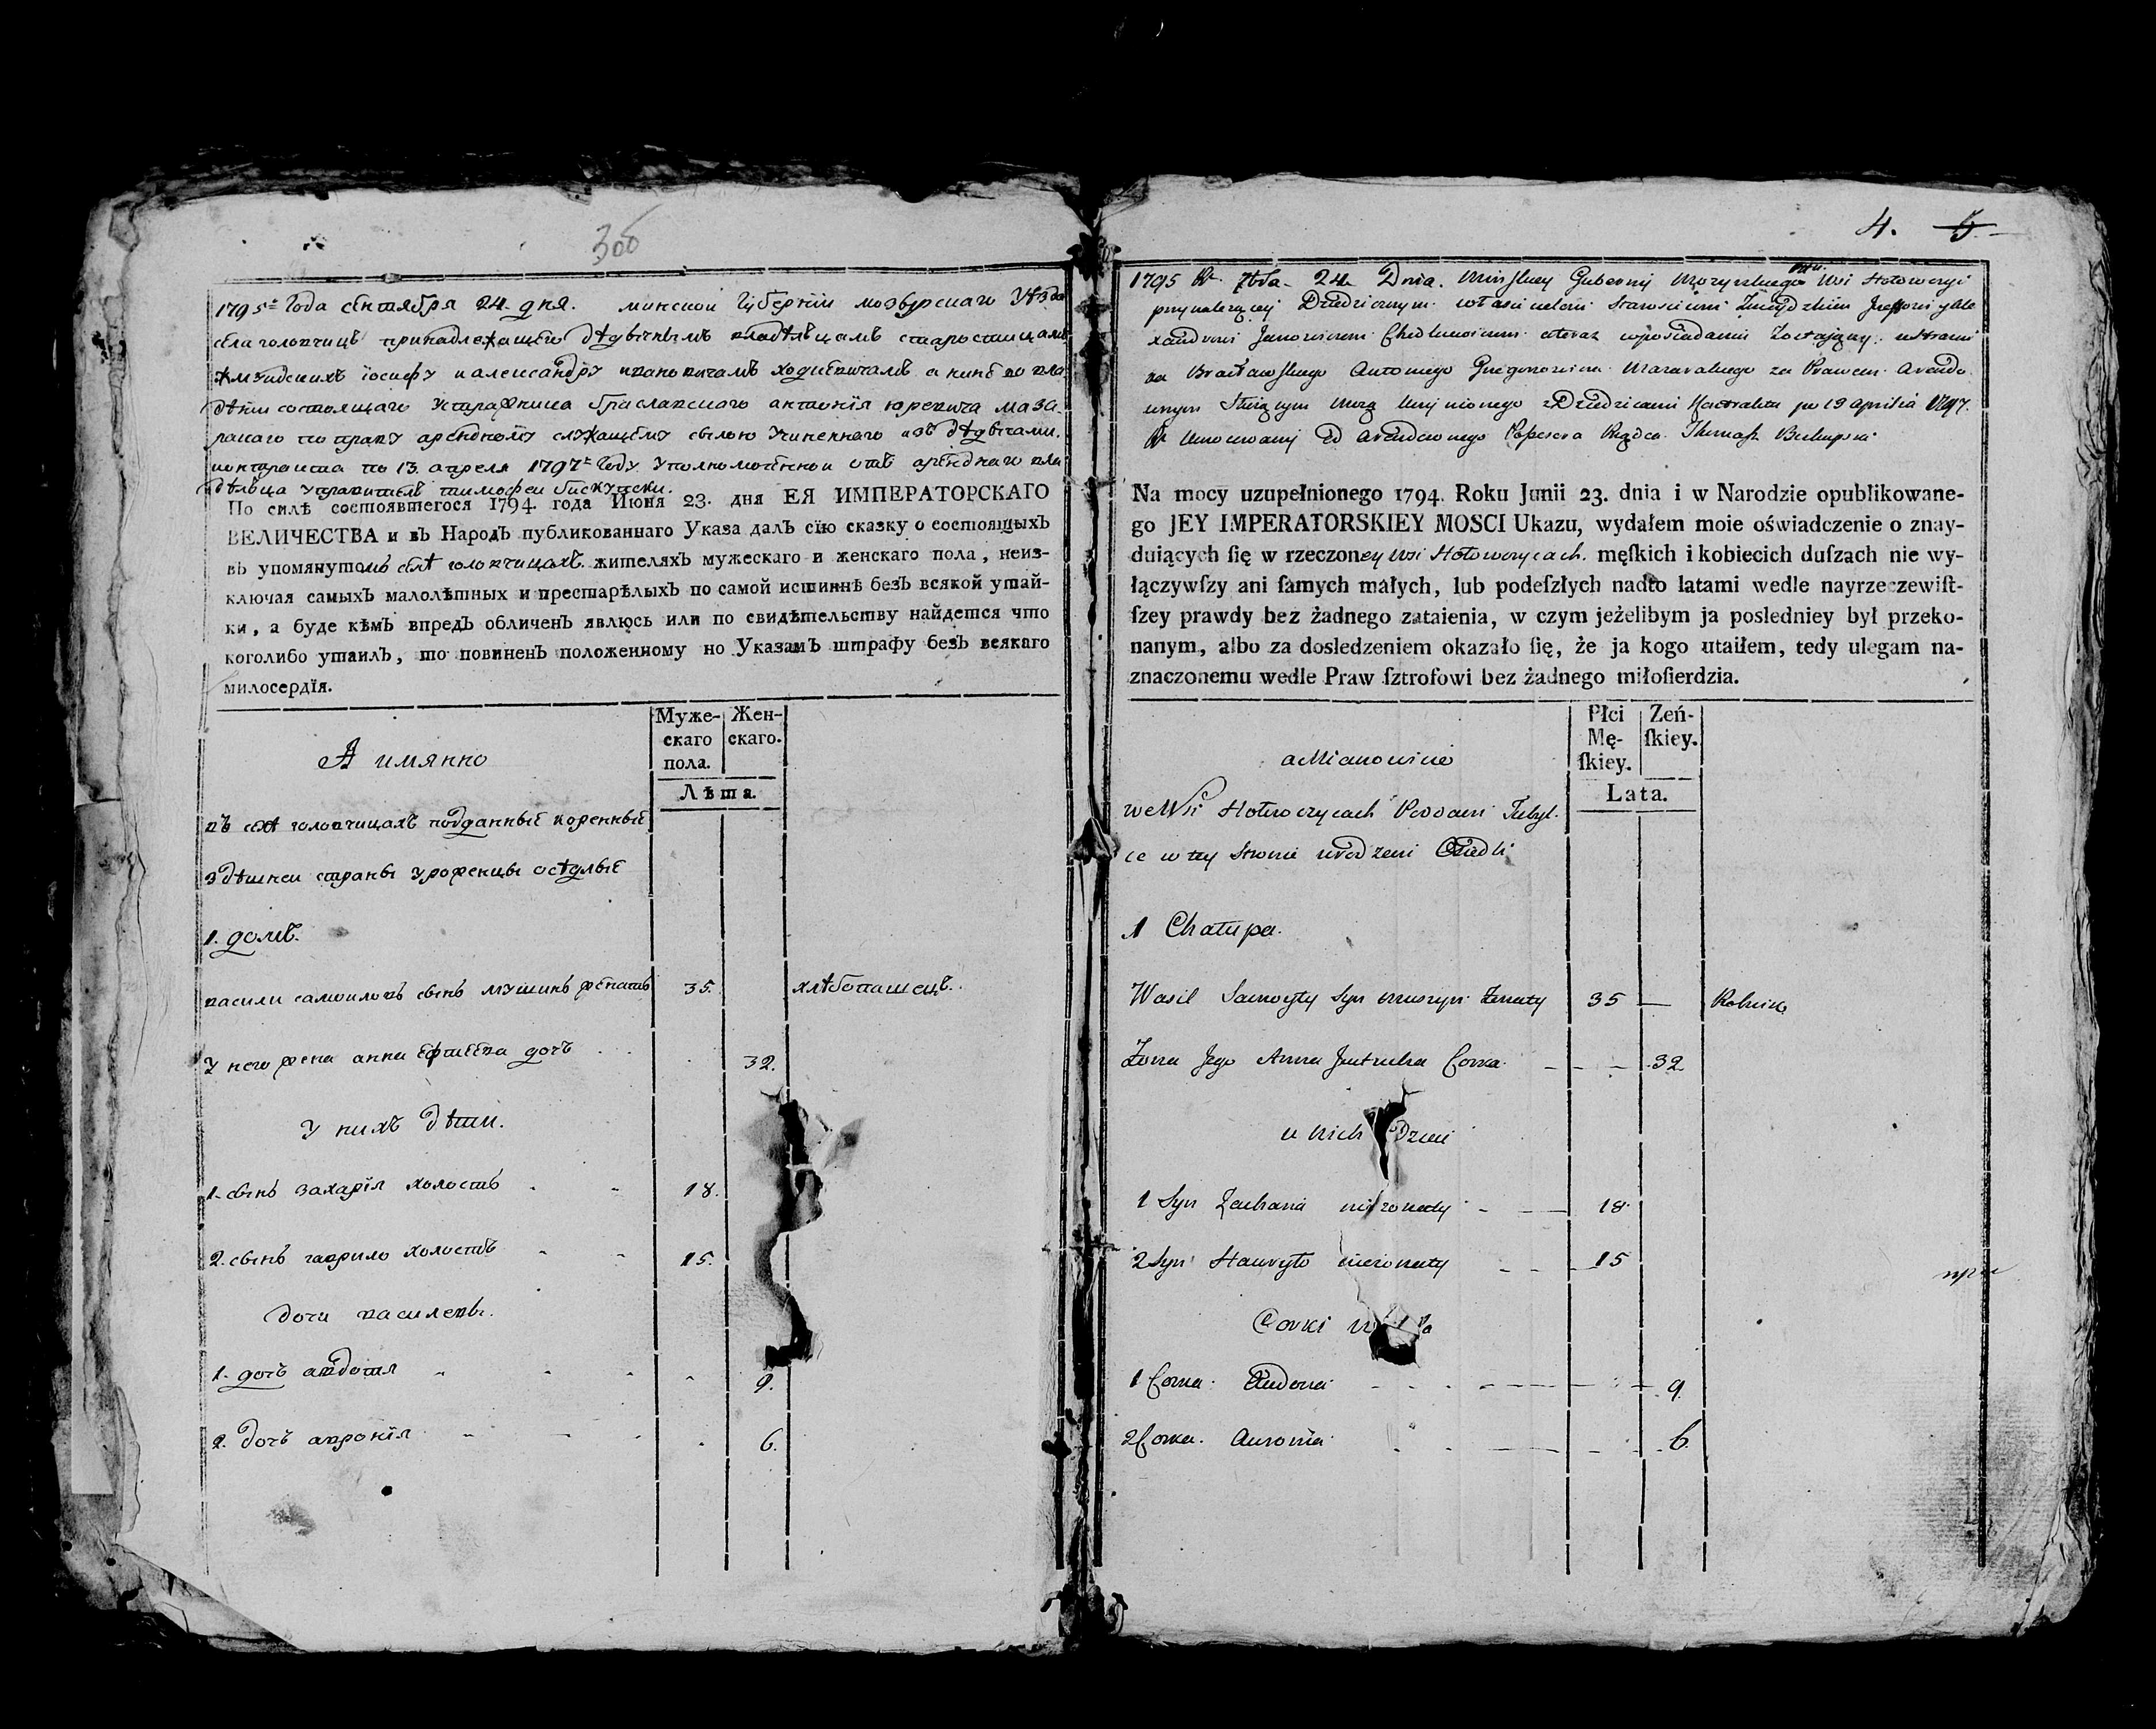 3об
1795г Года сентября 24. дня. минской Губернїи мозырскаго Уѣзда
села головчицъ принадлежащего дѣдичнымъ владѣльцамъ старостицамъ
жмудскихъ iосифу и александру ивановичамъ ходкевичамъ а нинѣ во вла
дѣнїи состоящаго у стражника браславского антонїя юревича маза-
раκаго по праву арендному служащему силою учиненнаго изъ дѣдичами.
контракта по 13. апреля 1797г году уполномоченной отъ аренднаго вла
дѣльца управитель тимофей бискупски.
По силѣ состоявшегося 1794 года Июня 23. дня ЕЯ ИМПЕРАТОРСКАГО
ВЕЛИЧЕСТВА и въ Народъ публикованнаго Указа далъ сїю сказку о состоящыхъ
въ упомянутомъ селѣ головчицахъ жителяхъ мужескаго и женскаго пола, неиз-
ключая самыхъ малолѣтныхъ и престарѣлыхъ по самой истиннѣ безъ всякой утай-
ки, а буде кѣмъ впредъ обличенъ явлюсь или по свидѣтельству найдется что
коголибо утаилъ, то повиненъ положенному по Указамъ штрафу безъ всякаго
милосердїя.
Муже-
скаго
пола.
Жен-
скаго.
Лѣта.
А имянно
въ селѣ головчицахъ подданные коренные
здѣшней страны уроженцы оседлые
1. домъ.
васили самоиловъ сынъ мушинъ женатъ 35. хлѣбопашецъ.
У него жена анна Ефтеева дочь 32.
У нихъ дѣти.
1. сынъ захарїя холостъ 18.
2. сынъ гаврило холостъ 15.
дочи василевы.
1. дочь авдотя 9.
2. дочь апронїя 6.
4. 5
1795 R. 7bra 24 Dnia. Minskiey Gubernij Mozyrskiego Pttu. Wsi Hołowczyc
przynależącey Dziedzicznym właścicielom Starościcom Żmuydzkim Jozefowi y Ale
xandrowi Janowiczom Chodkiewiczom a teraz w posiadaniu zostającey u Strażni
ka Brasławskiego Antoniego
R. Umocowany od Arendownego Possesora Rządca Thimofi Biskupski
Na mocy uzupełnionego 1794. Roku Junii 23. dnia i w Narodzie opublikowane-
go JEY IMPERATORSKIEY MOSCI Ukazu, wydałem moie oświadczenie o znay-
duiących ſię w rzeczoney Wsi Hołowczycach. męſkich i kobiecich duſzach nie wy-
łączywſzy ani ſamych małych, lub podeſzłych nadto latami wedle nayrzeczewiſt-
ſzey prawdy bez żadnego zataienia, w czym jeżelibym ja posledniey był przeko-
nanym, albo za dosledzeniem okazało ſię, że ja kogo utaiłem, tedy ulegam na-
znaczonemu wedle Praw ſztrofowi bez żadnego miłoſierdzia.
Płci
Mę-
ſkiey.
Zeń-
ſkiey.
Lata.
a Mianowicie
we Wsi Hołowczycach Poddani Tubyl-
ce w tey stronie urodzeni Osiedli
1 Chałupa.
Wasil Samoyły Syn Muszyn Żonaty 35 — Rolnik
Żona Jego Anna Jeutucha Corka 32
u nich Dzieci
1 Syn Zacharia nieżonaty 18
2 Syn Hawryło nieżonaty 15
Corki
1 Corka. Audocia 9.
2 Corka. Auronia 6.